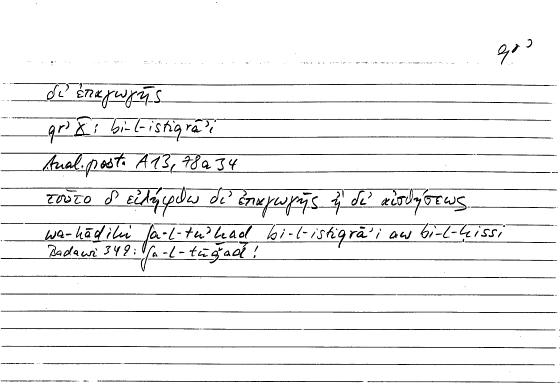 qrʾ
δι' ἐπαγωγῆς
qrʾ X̅: bi-l-istiqrāʾi
Anal. post. A 13, 78a 34
τοῦτο δ' εἰλήφθω δι' ἐπαγωγῆς ἢ δι' αἰσθήσεως
wa-hāḏihī fa-l-tuʾḫaḏ bi-l-istiqrāʾi aw bi-l-ḥissi
Badawi 349: fa-l-tūǧad!